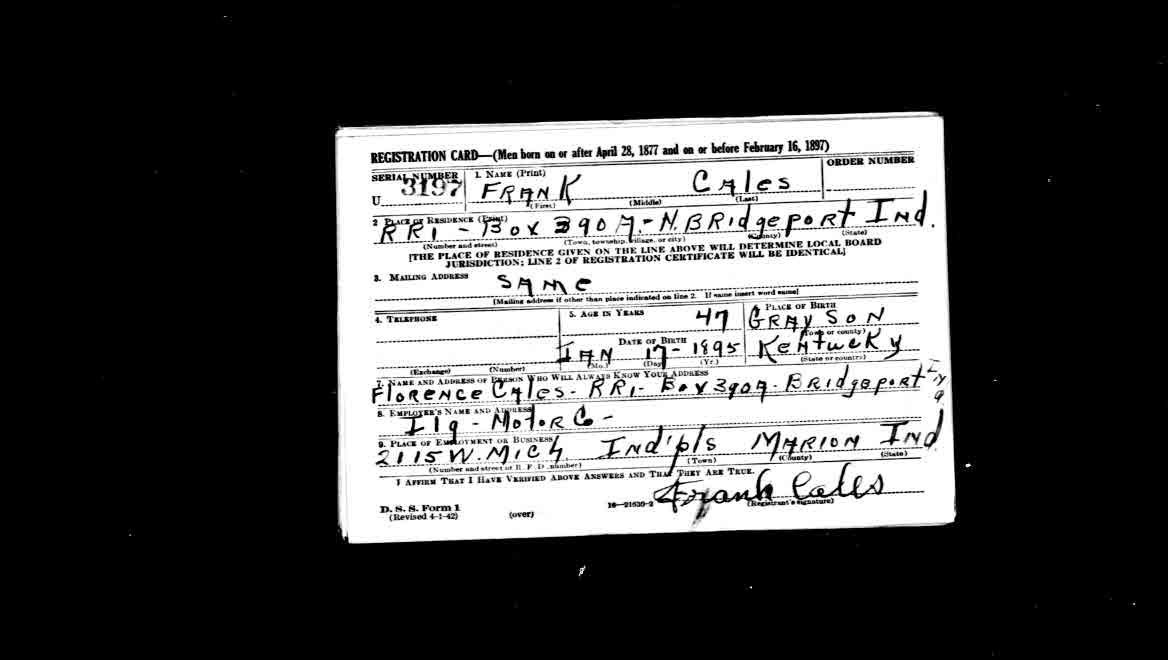 REGISTRATION CARD—(Men born on or after April 28, 1877 and on or before February 16, 1897)
SERIAL NUMBER 1. NAME (Print) ORDER NUMBER
U 3197 FRANK CALES
(First) (Middle) (Last)
2 PLACE OF RESIDENCE (Print)
RR1 - BOX 390A - N. BRidgeport Ind.
(Number and street) (Town, township, village, or city) (County) (State)
[THE PLACE OF RESIDENCE GIVEN ON THE LINE ABOVE WILL DETERMINE LOCAL BOARD
JURISDICTION; LINE 2 OF REGISTRATION CERTIFICATE WILL BE IDENTICAL]
3. MAILING ADDRESS
SAME
[Mailing address if other than place indicated on line 2. If same insert word same]
4. TELEPHONE 5. AGE IN YEARS PLACE OF BIRTH
47 GRAYSON
(Town or county)
DATE OF BIRTH
JAN 17 - 1895 KENtucKy
(Mo.) (Day) (Yr.) (State or country)
(Exchange) (Number)
7. NAME AND ADDRESS OF PERSON WHO WILL ALWAYS KNOW YOUR ADDRESS
FloRENCE CAles - RR1 - Box 390A - BRidgeport
8. EMPLOYER'S NAME AND ADDRESS
Ilg - MotoR Co -
9. PLACE OF EMPLOYMENT OR BUSINESS
2115 W. Mich Ind'pls MARION Ind
(Number and street or R. F. D. number) (Town) (County) (State)
I AFFIRM THAT I HAVE VERIFIED ABOVE ANSWERS AND THAT THEY ARE TRUE.
Frank Cales
D. S. S. Form 1 16—21630-2 (Registrant's signature)
(Revised 4-1-42) (over)